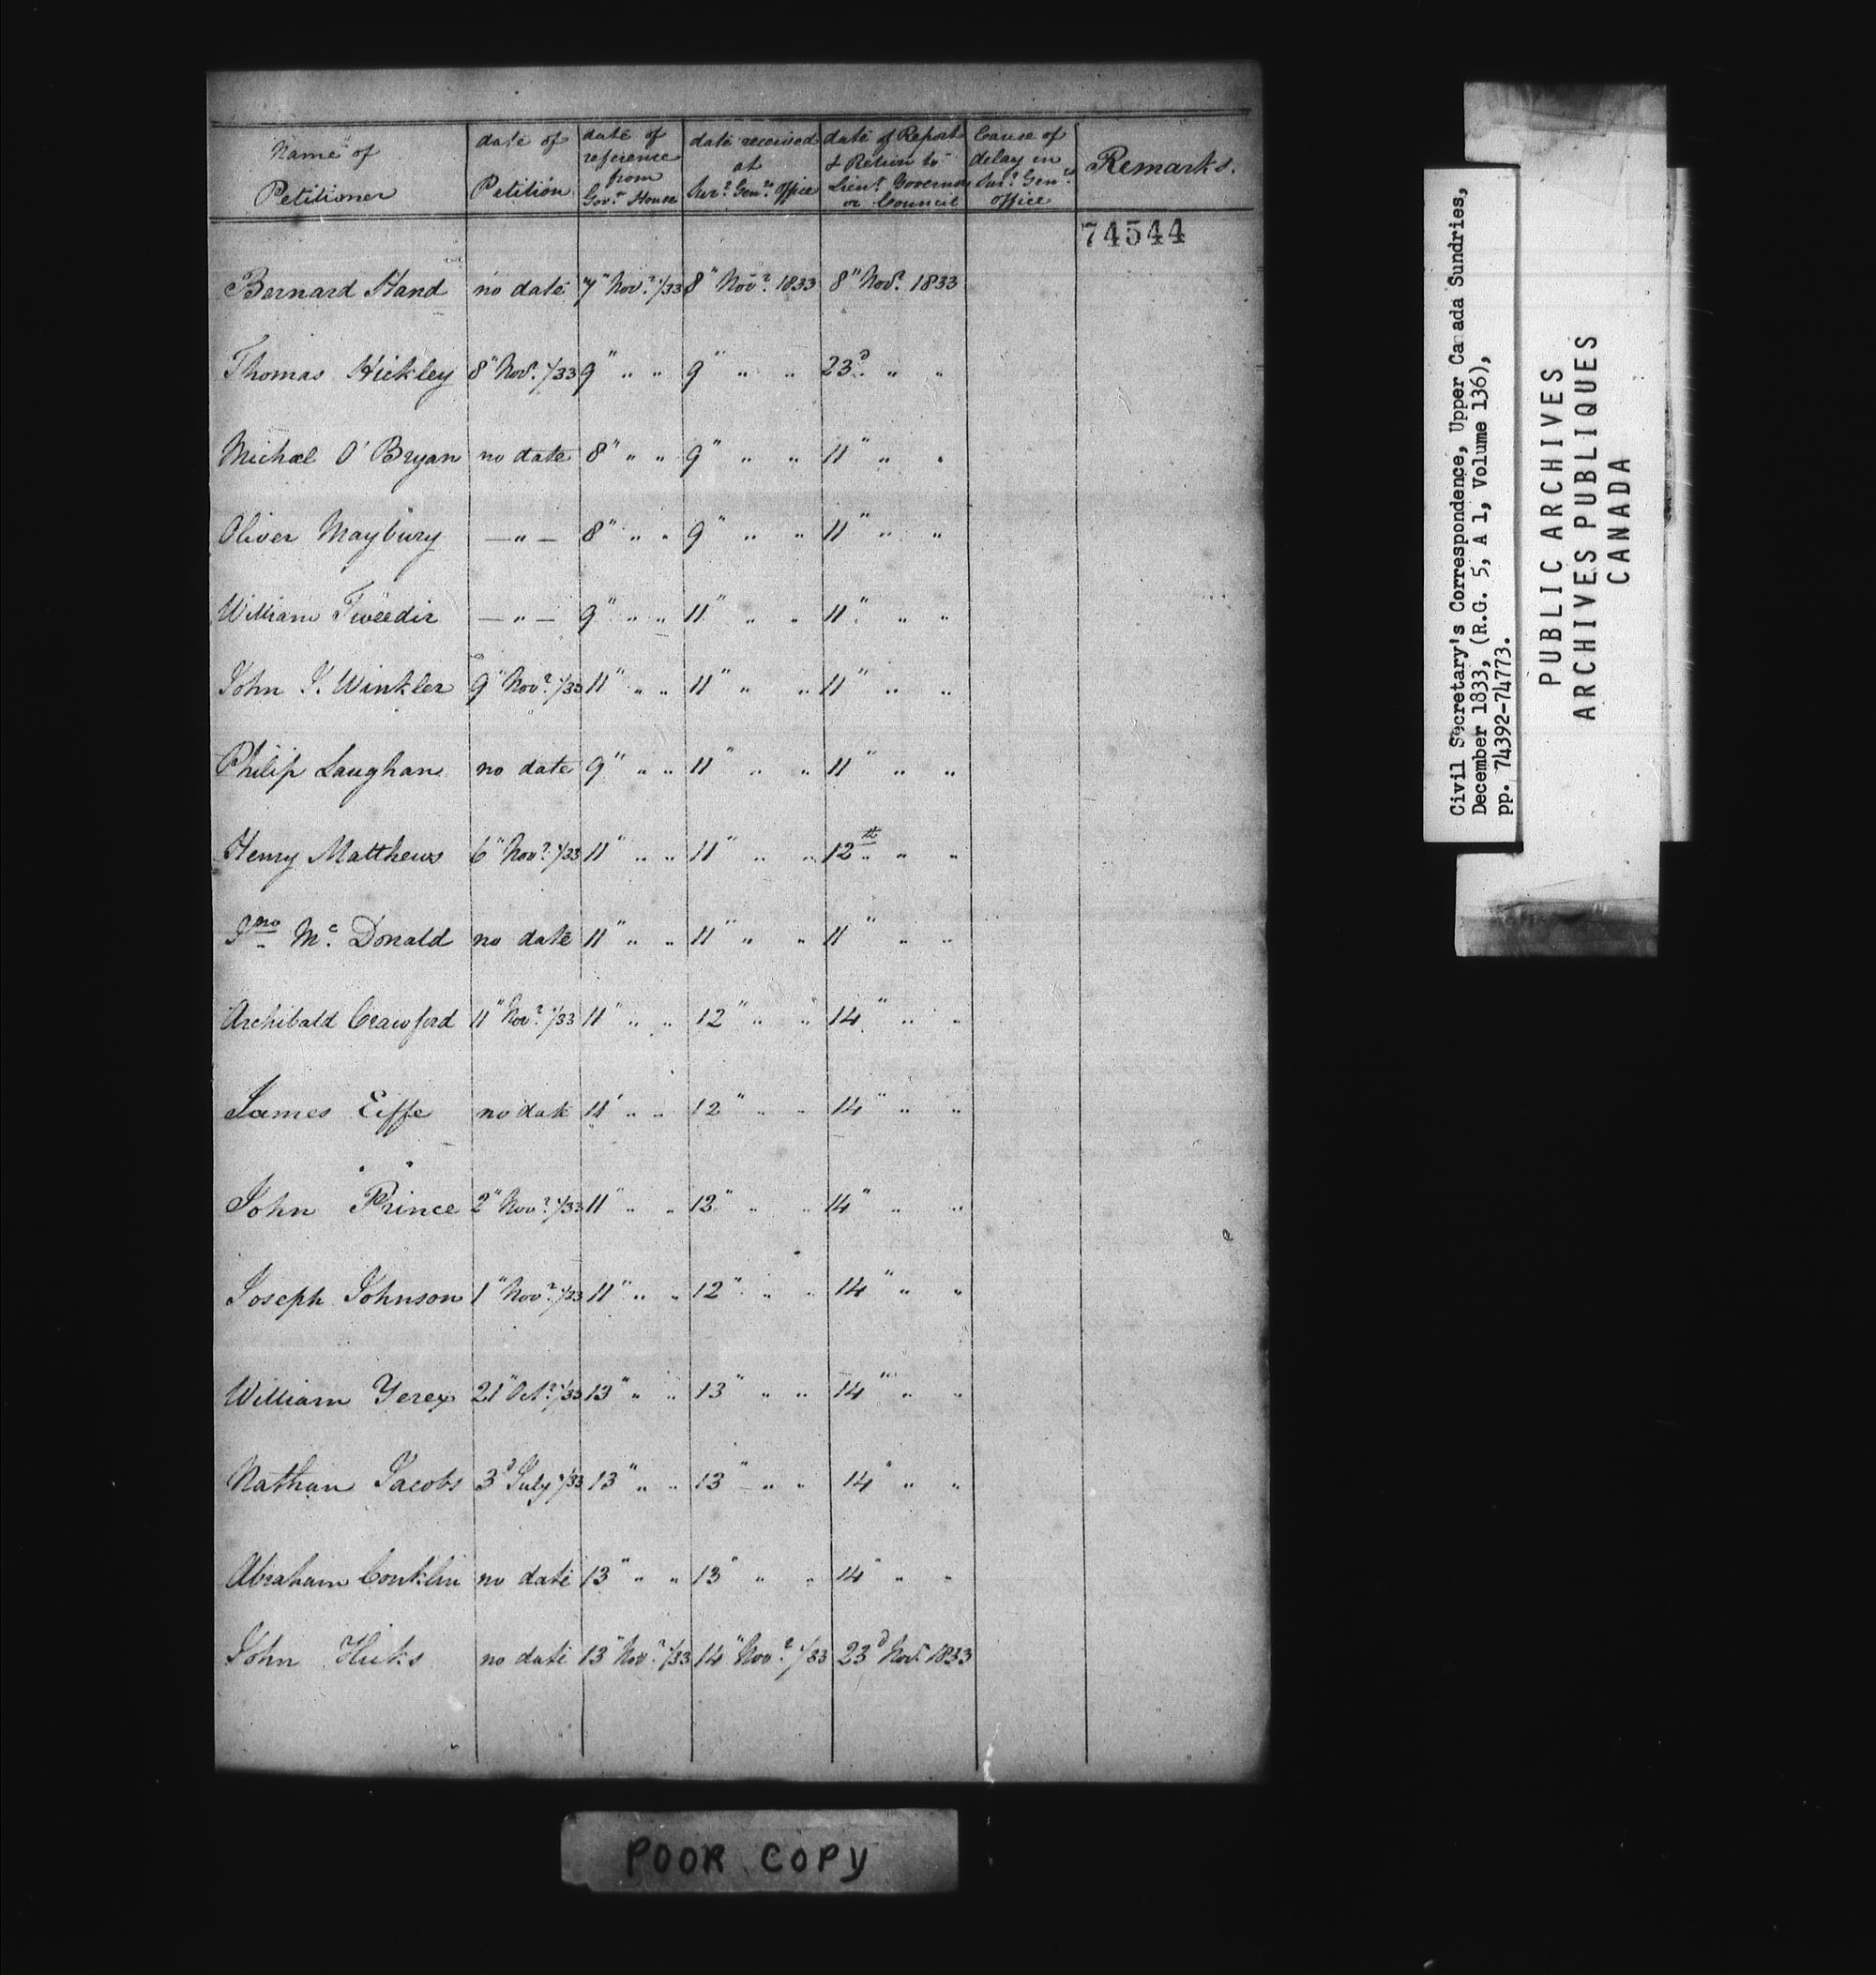 Name of Petitioner | date of Petition | date of reference from Gov.r House | date received at Sur.r Gen.ls Office | date of Report & Return to Lieut. Governor or Council | Cause of delay in Sur.r Gen.ls office | Remarks.
74544
Bernard Hand | no date | 7" Nov.r 1/33 | 8" Nov.r 1833 | 8" Nov.r 1833
Thomas Hickley | 8" Nov.r 1/33 | 9" " " | 9" " " | 23d " "
Michael O'Bryan | no date | 8" " " | 9" " " | 11" " "
Oliver Maybury | — " — | 8" " " | 9" " " | 11" " "
William Tweedie | — " — | 9" " " | 11" " " | 11" " "
John I. Winkler | 9" Nov.r 1/33 | 11" " " | 11" " " | 11" " "
Philip Laughan | no date | 9" " " | 11" " " | 11" " "
Henry Matthews | 6" Nov.r 1/33 | 11" " " | 11" " " | 12th " "
Jno Mc. Donald | no date | 11" " " | 11" " " | 11" " "
Archibald Crawford | 11" Nov.r 1/33 | 11" " " | 12" " " | 14" " "
James Eiffe | no date | 11" " " | 12" " " | 14" " "
John Prince | 2" Nov.r 1/33 | 11" " " | 12" " " | 14" " "
Joseph Johnson | 1" Nov.r 1/33 | 11" " " | 12" " " | 14" " "
William Yerex | 21" Oct.r 1/33 | 13" " " | 13" " " | 14" " "
Nathan Jacobs | 3d July 1/33 | 13" " " | 13" " " | 14" " "
Abraham Conklin | no date | 13" " " | 13" " " | 14" " "
John Hicks | no date | 13" Nov.r 1/33 | 14" Nov.r 1/33 | 23d Nov.r 1833
POOR COPY
Civil Secretary's Correspondence, Upper Ca ada Sundries,
December 1833, (R.G. 5, A 1, Volume 136),
pp. 74392-74773.
PUBLIC ARCHIVES
ARCHIVES PUBLIQUES
CANADA